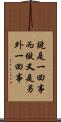 說是一回事
而做又是另
外一回事